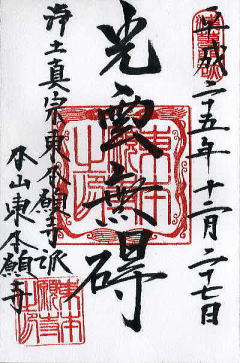 平成二十五年十二月二十七日
光雲無碍
浄土真宗東本願寺派
本山東本願寺
東本
願寺